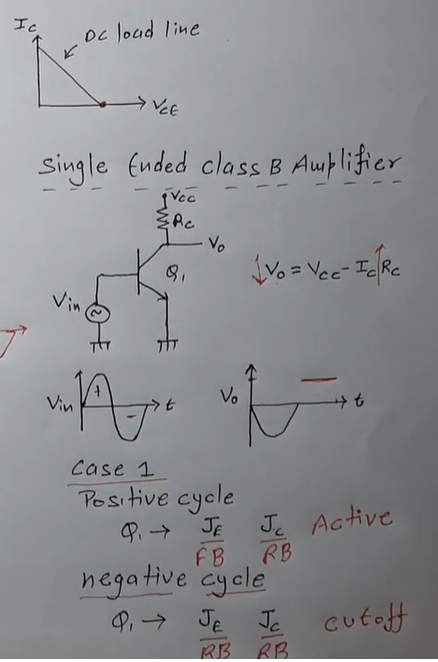 Ic
DC load line
VCE
Single Ended class B Amplifier
Vcc
Rc
Vo
Q1
Vin
↓Vo = Vcc - Ic↑Rc
Vin + - t
Vo t
Case 1
Positive cycle
Q1 → JE Jc Active
FB RB
negative cycle
Q1 → JE Jc cutoff
RB RB